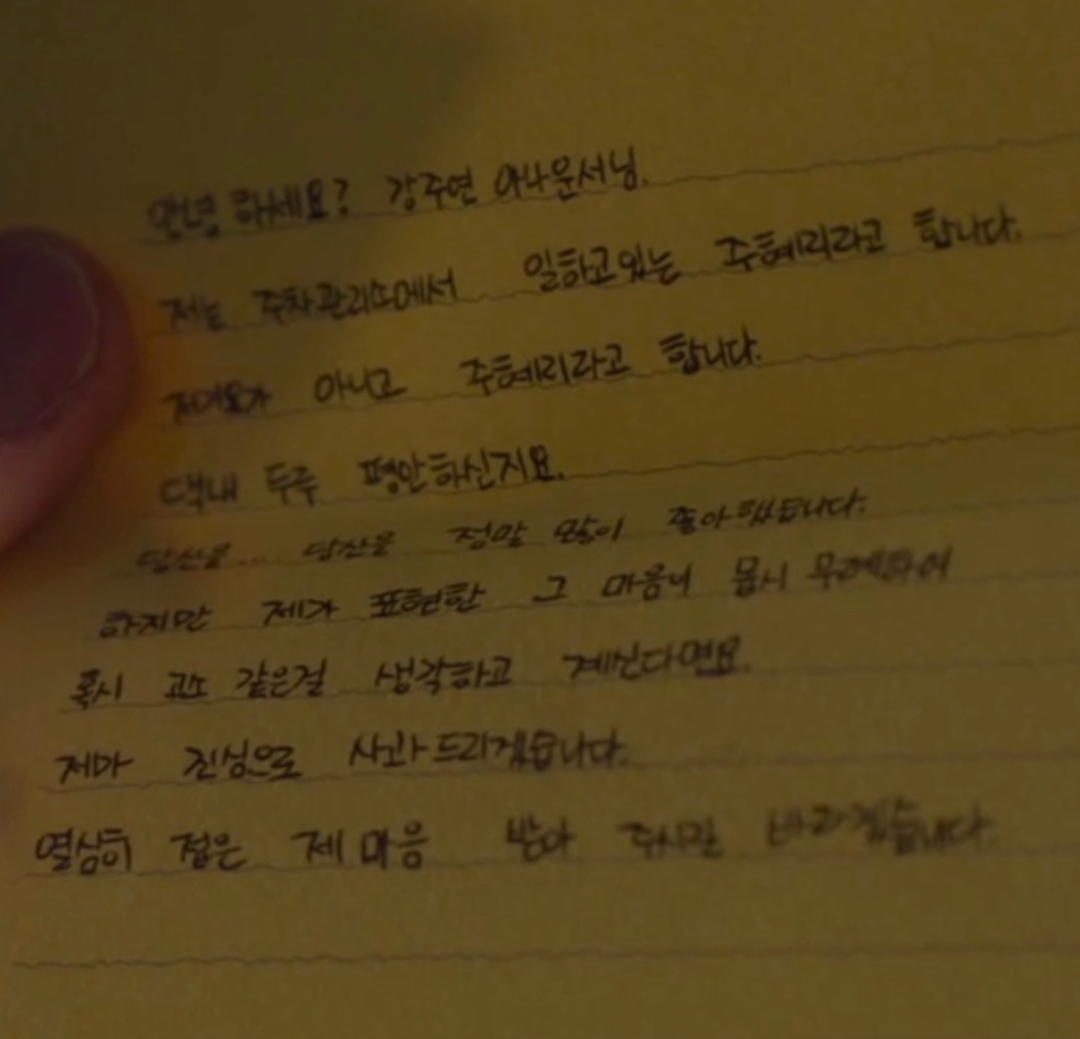 안녕 하세요? 강주연 아나운서님.
저는 주차관리소에서 일하고있는 주혜리라고 합니다.
아니고 주혜리라고 합니다.
댁내 두루 평안하신지요.
당신을... 당신을 정말 많이 좋아했습니다.
하지만 제가 표현한 그 마음이 몹시 무례하여
혹시 고소 같은걸 생각하고 계신다면요.
제마 진심으로 사과드리겠습니다.
열심히 접은 제 마음 받아 주시길 바라겠습니다.